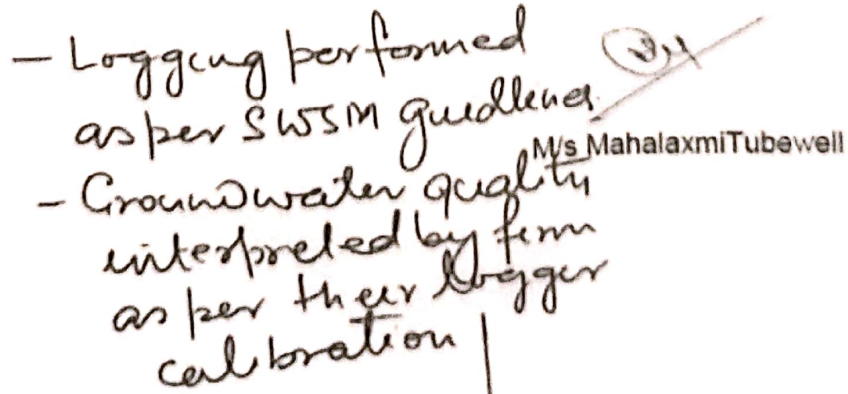 - Logging performed
as per SWSM guidlines.
M/s MahalaxmiTubewell
- Groundwater quality
interpreted by firm
as per their logger
calibration